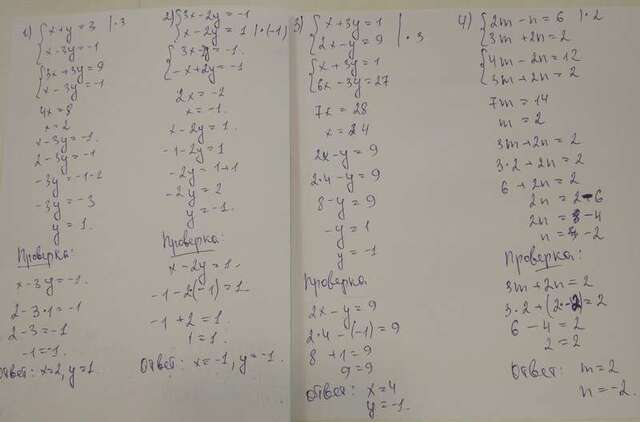 1) { x+y=3 | ·3
{ x-3y=-1
{ 3x+3y=9
{ x-3y=-1
4x=8
x=2
x-3y=-1.
2-3y=-1
-3y=-1-2
-3y=-3
y=1.
Проверка:
x-3y=-1.
2-3·1=-1
2-3=-1
-1=-1.
Ответ: x=2, y=1.
2) { 3x-2y=-1
{ x-2y=1 | ·(-1)
{ 3x-2y=-1.
{ -x+2y=-1
2x=-2
x=-1.
x-2y=1.
-1-2y=1
-2y=1+1
-2y=2
y=-1.
Проверка:
x-2y=1.
-1-2(-1)=1
-1+2=1.
1=1.
Ответ: x=-1, y=-1.
3) { x+3y=1
{ 2x-y=9 | ·3
{ x+3y=1
{ 6x-3y=27
7x=28
x=4
2x-y=9
2·4-y=9
8-y=9
-y=1
y=-1
Проверка
2x-y=9
2·4-(-1)=9
8+1=9
9=9
Ответ: x=4
y=-1.
4) { 2m-n=6 | ·2
{ 3m+2n=2
{ 4m-2n=12
{ 3m+2n=2
7m=14
m=2
3m+2n=2
3·2+2n=2
6+2n=2
2n=2-6
2n=-4
n=-2
Проверка:
3m+2n=2
3·2+(2·-2)=2
6-4=2
2=2
Ответ: m=2
n=-2.